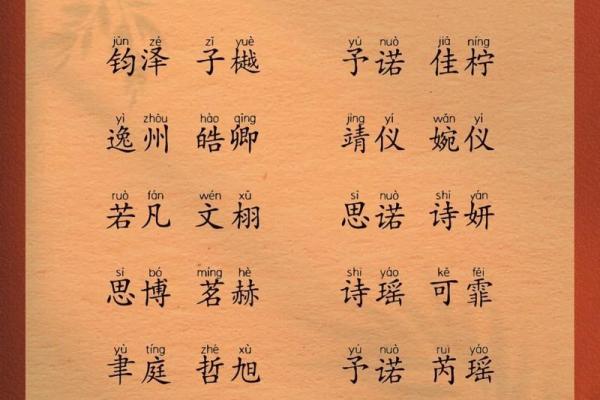 jūn zé zǐ yuè yǔ nuò jiā níng
钧泽 子樾 予诺 佳柠
yì zhōu hào qīng jìng yí wǎn yí
逸州 皓卿 靖仪 婉仪
ruò fán wén xǔ sī nuò shī yán
若凡 文栩 思诺 诗妍
sī bó míng hè shī yáo kě fēi
思博 茗赫 诗瑶 可霏
yù tíng zhé xù yǔ nuò ruì yáo
聿庭 哲旭 予诺 芮瑶